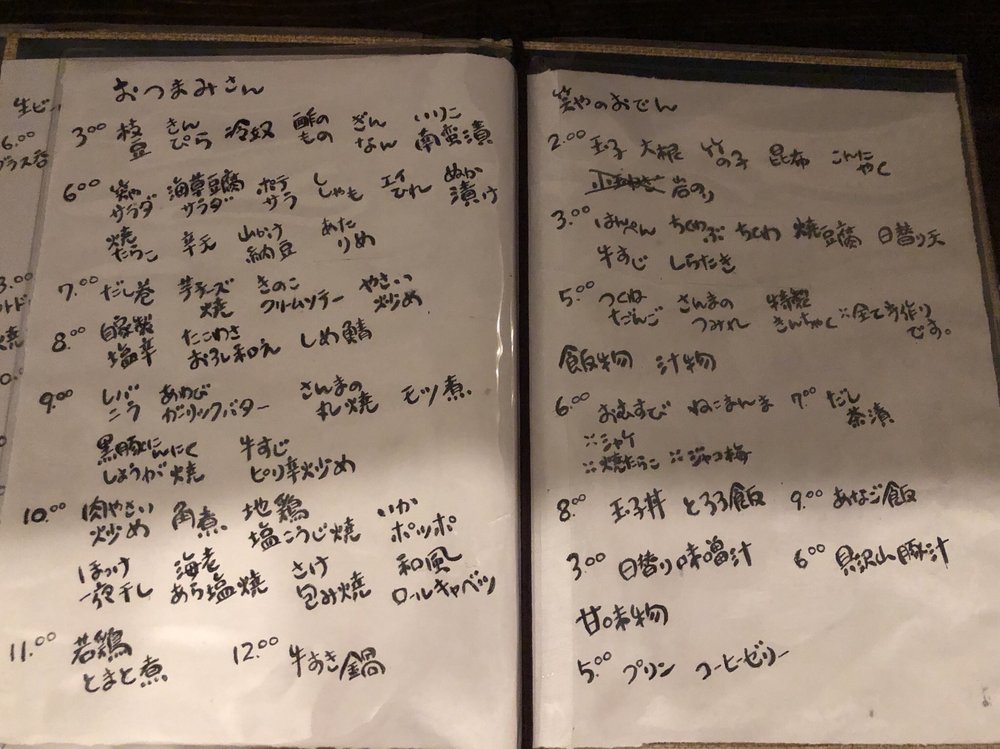 生ビー
6.00
グラス呑
おつまみさん
3.00 枝豆 きんぴら 冷奴 酢のもの ぎんなん いりこ南蛮漬
6.00 笑やサラダ 海草豆腐サラダ ポテサラ ししゃも エイひれ ぬか漬け
焼たらこ 辛天 山かけ納豆 あたりめ
7.00 だし巻 芋チーズ焼 きのこクリームソテー やさい炒め
8.00 自家製塩辛 たこわさおろし和え しめ鯖
9.00 レバニラ あわびガーリックバター さんまの丸焼 モツ煮
黒豚にんにくしょうが焼 牛すじピリ辛炒め
10.00 肉やさい炒め 角煮 地鶏塩こうじ焼 いかポッポ
ほっけ一夜干し 海老あら塩焼 さけ包み焼 和風ロールキャベツ
11.00 若鶏とまと煮 12.00 牛すき鍋
笑やのおでん
2.00 玉子 大根 竹の子 昆布 こんにゃく
岩のり
3.00 はんぺん ちくわぶ ちくわ 焼豆腐 日替り天
牛すじ しらたき
5.00 つくねだんご さんまのつみれ 特製きんちゃく ※全て手作りです。
飯物 汁物
6.00 おむすび ねこまんま 7.00 だし茶漬
※シャケ
※焼たらこ ※ジャコ梅
8.00 玉子丼 とろろ飯 9.00 あなご飯
3.00 日替り味噌汁 6.00 具沢山豚汁
甘味物
5.00 プリン コーヒーゼリー